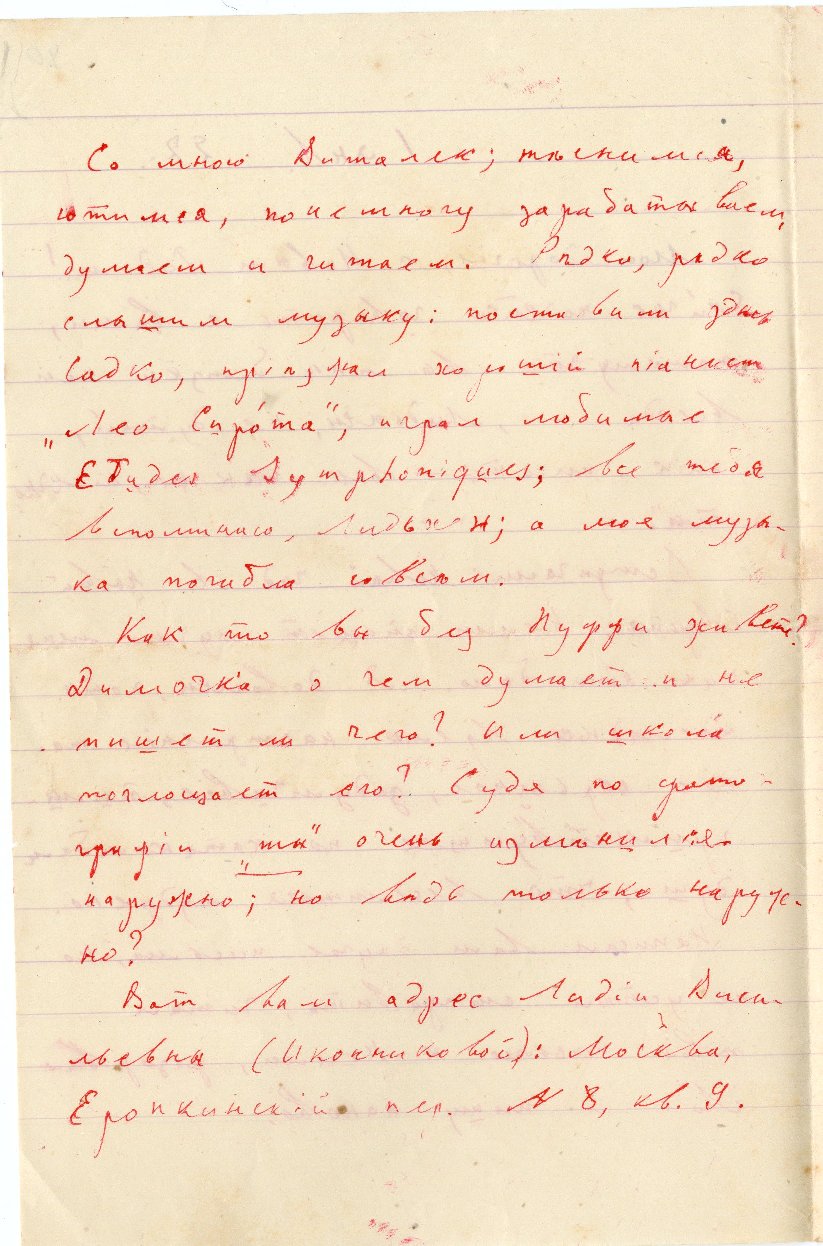 Со мною Виталек; тѣснимся,
ютимся, понемногу зарабатываем,
думаем и читаем. Рѣдко, рѣдко
слышим музыку: поставили здѣсь
Садко, пріѣзжал хорошій піанист
„Лео Сиро́та“, играл, любимые
Etudes Symphoniques; все тебя
вспоминаю,
а моя музы-
ка погибла совсѣм.
Как то вы без Пуффи живете?
Димочка о чем думает и не
пишет ли чего? Или школа
поглощает его? Судя по фото-
графіи „ты“ очень измѣнился
наружно; но вѣдь только наруж-
но?
Вот вам адрес Лидіи Васи-
льевны (Иконниковой): Москва,
Еропкинскій пер. N 8, кв. 9.